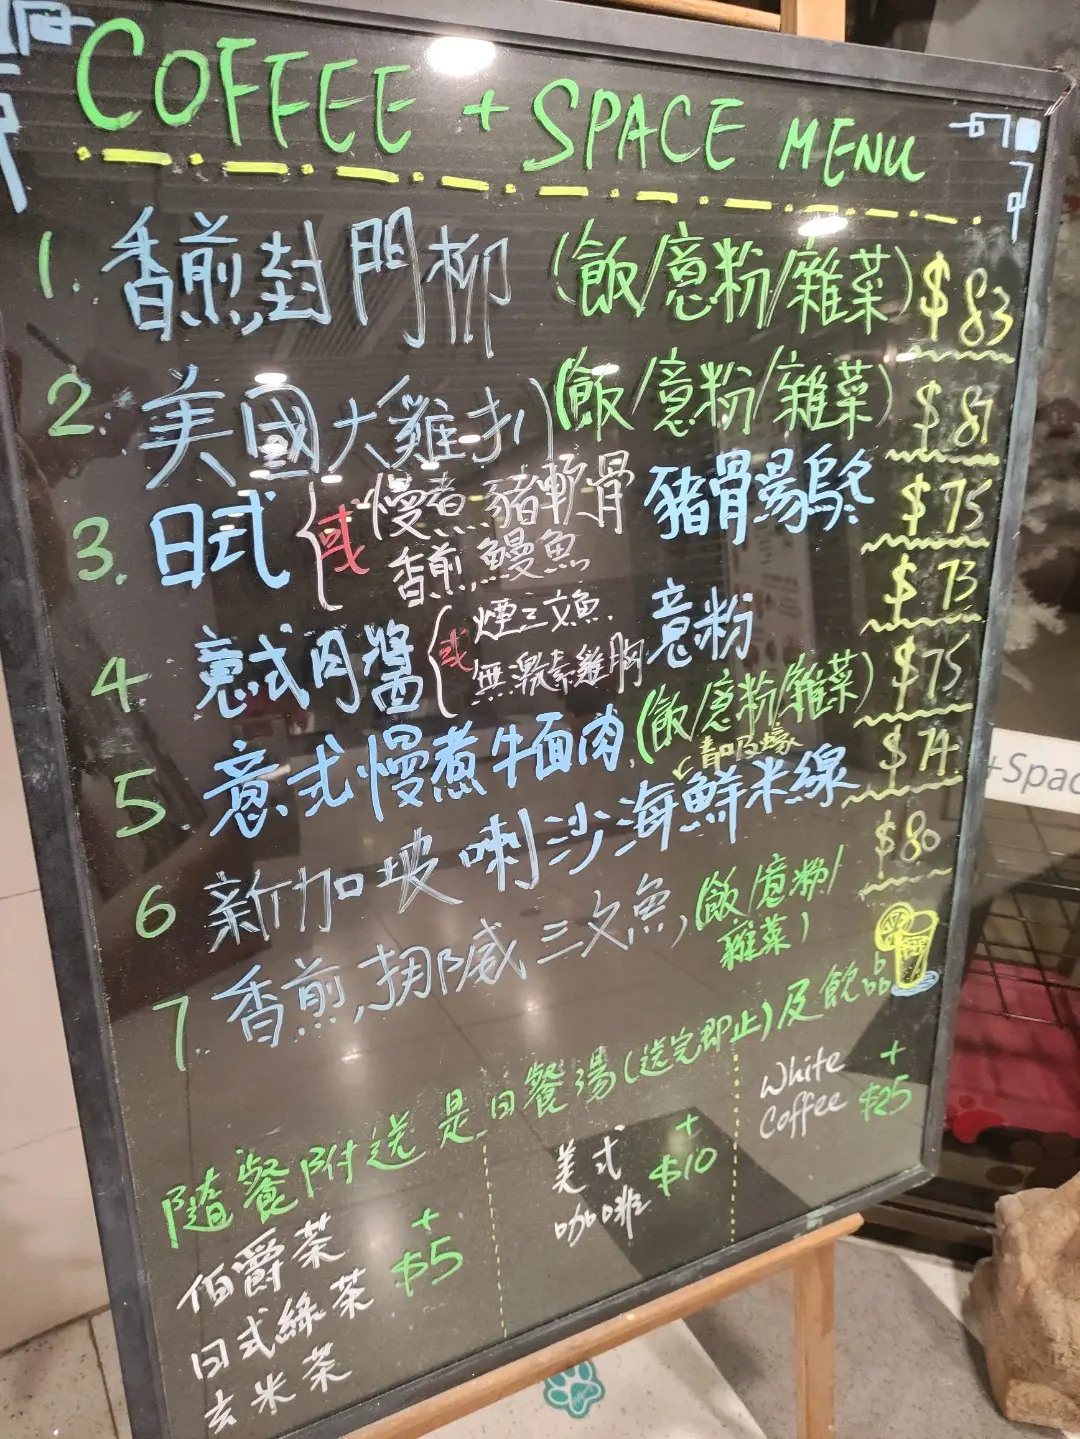 COFFEE + SPACE MENU
1. 香煎封門柳 (飯/意粉/雜菜) $83
2. 美國大雞扒 (飯/意粉/雜菜) $81
3. 日式 {或 慢煮豬軟骨 香煎鰻魚 豬骨湯烏冬 $75
4 意式肉醬 {或 煙三文魚 無激素雞胸 意粉 $73
5. 意式慢煮牛面肉 (飯/意粉/雜菜) $75
青口及蠔
6 新加坡喇沙海鮮米線 $74
7. 香煎挪威三文魚 (飯/意粉/雜菜) $80
隨餐附送是日餐湯(送完即止)及飲
伯爵茶
日式綠茶
玄米茶
+
$5
美式
咖啡
+
$10
White
Coffee
+
$25
+Spac